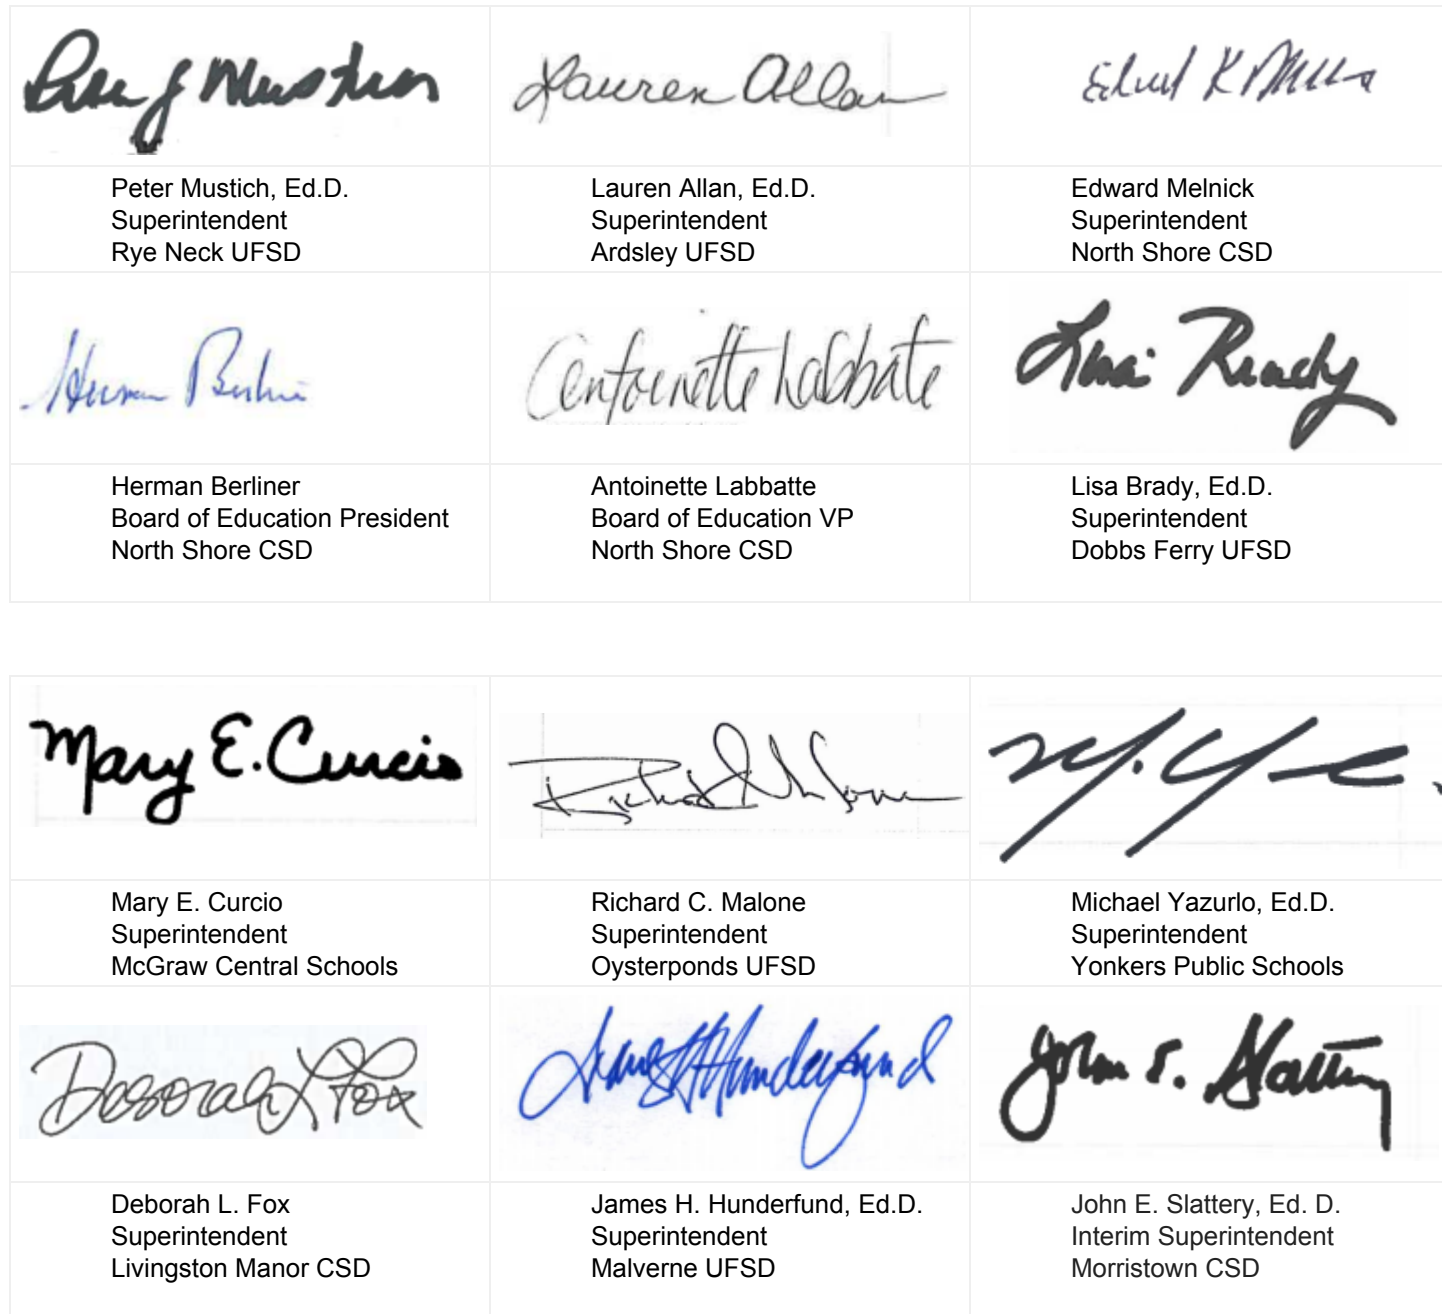 Lauren Allan
Peter Mustich, Ed.D.
Superintendent
Rye Neck UFSD
Lauren Allan, Ed.D.
Superintendent
Ardsley UFSD
Edward Melnick
Superintendent
North Shore CSD
Antoinette Labbate
Herman Berliner
Board of Education President
North Shore CSD
Antoinette Labbatte
Board of Education VP
North Shore CSD
Lisa Brady, Ed.D.
Superintendent
Dobbs Ferry UFSD
Mary E. Curcio
Mary E. Curcio
Superintendent
McGraw Central Schools
Richard C. Malone
Superintendent
Oysterponds UFSD
Michael Yazurlo, Ed.D.
Superintendent
Yonkers Public Schools
Deborah L Fox
Deborah L. Fox
Superintendent
Livingston Manor CSD
James H. Hunderfund, Ed.D.
Superintendent
Malverne UFSD
John E. Slattery, Ed. D.
Interim Superintendent
Morristown CSD